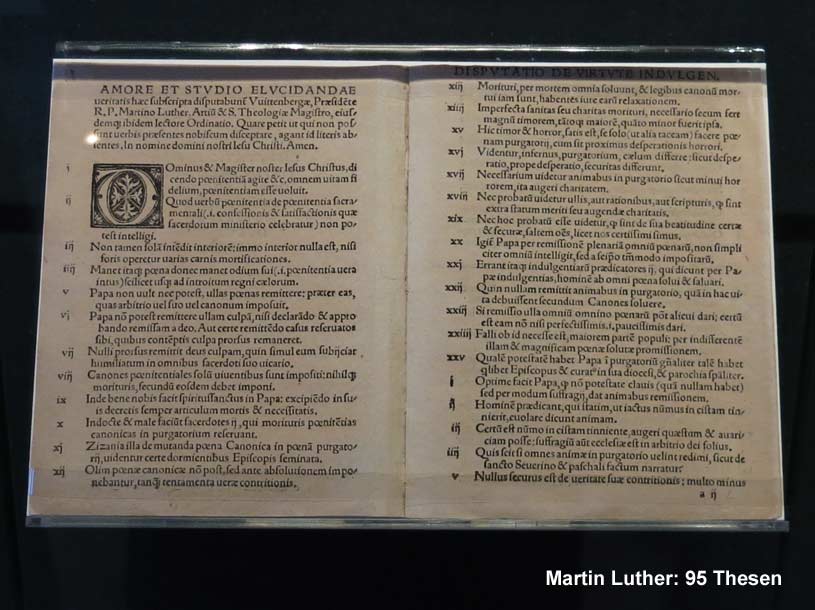 AMORE ET STVDIO ELVCIDANDAE
ueritatis hæc subscripta disputabunt Vuittenbergæ, Præsidẽte
R. P. Martino Luther, Artiũ & S. Theologiæ Magistro, eius-
demq; ibidem lectore Ordinatio. Quare petit ut qui non pos
sunt uerbis præsentes nobiscum disceptare, agant id literis ab-
sentes. In nomine domini nostri Iesu Christi. Amen.
i DOminus & Magister noster Iesus Christus, di
cendo pœnitentiã agite &c, omnem uitam fi
delium, pœnitentiam esse uoluit.
ij Quod uerbũ pœnitentia de pœnitentia sacra
mentali (.i. confessionis & satisfactionis quæ
sacerdotum ministerio celebratur) non po-
test intelligi.
iij Non tamen solã intẽdit interiorẽ: immo interior nulla est, nisi
foris operetur uarias carnis mortificationes.
iiij Manet itaq; pœna donec manet odium sui (.i. pœnitentia uera
intus) scilicet usq; ad introitum regni cælorum.
v Papa non uult nec potest, ullas pœnas remittere: præter eas,
quas arbitrio uel suo uel canonum imposuit.
vi Papa nõ potest remittere ullam culpã, nisi declarãdo & appro
bando remissam a deo. Aut certe remittẽdo casus reseruatos
sibi, quibus contẽptis culpa prorsus remaneret.
vij Nulli prorsus remittit deus culpam, quin simul eum subijciat
humiliatum in omnibus sacerdoti suo uicario.
viij Canones pœnitentiales solũ uiuentibus sunt impositi: nihilq;
morituris, secundũ eosdem debet imponi.
ix Inde bene nobis facit spiritussanctus in Papa: excipiẽdo in su-
is decretis semper articulum mortis & necessitatis.
x Indocte & male faciũt sacerdotes ij, qui morituris pœnitẽtias
canonicas in purgatorium reseruant.
xj Zizania illa de mutanda pœna Canonica in pœnã purgato-
rij, uidentur certe dormientibus Episcopis seminata.
xij Olim pœnæ canonicæ nõ post, sed ante absolutionem impo
nebantur, tanq̃ tentamenta ueræ contritionis.
DISPVTATIO DE VIRTVTE INDVLGEN.
xiij Morituri, per mortem omnia soluunt, & legibus canonũ mor
tui iam sunt, habentes iure earũ relaxationem.
xiiij Imperfecta sanitas seu charitas morituri, necessario secum fert
magnũ timorem, tãtoq; maiorẽ, quãto minor fuerit ipsa.
xv Hic timor & horror, satis est, se solo (ut alia taceam) facere pœ-
nam purgatorij, cum sit proximus desperationis horrori.
xvj Videntur, infernus, purgatorium, cælum differre: sicut despe-
ratio, prope desperatio, securitas differunt.
xvij Necessarium uidetur animabus in purgatorio sicut minui hor
rorem, ita augeri charitatem.
xviij Nec probatũ uidetur ullis, aut rationibus, aut scripturis, q̃ sint
extra statum meriti seu augendæ charitatis.
xix Nec hoc probatũ esse uidetur, q̃ sint de sua beatitudine certæ
& securæ, saltem oẽs, licet nos certissimi simus.
xx Igit̃ Papa per remissionẽ plenariã omniũ pœnarũ, non simpli
citer omniũ intelligit, sed a seipso tm̃modo impositarũ.
xxj Errant itaq; indulgentiarũ prædicatores ij, qui dicunt per Pa-
pæ indulgentias, hominẽ ab omni pœna solui & saluari.
xxij Quin nullam remittit animabus in purgatorio, quã in hac ui-
ta debuissent secundum Canones soluere.
xxiij Si remissio ulla omnium omnino pœnarũ põt alicui dari; certũ
est eam nõ nisi perfectissimis .i. paucissimis dari.
xxiiij Falli ob id necesse est, maiorem partẽ populi: per indifferentẽ
illam & magnificam pœnæ solutæ promissionem.
xxv Qualẽ potestatẽ habet Papa ĩ purgatoriũ gñaliter talẽ habet
q̃libet Episcopus & curat⁹ in sua diocesi, & parochia spãliter.
j Optime facit Papa, q̃ nõ potestate clauis (quã nullam habet)
sed per modum suffragij, dat animabus remissionem.
ij Hominẽ prædicant, qui statim, ut iactus nũmus in cistam tin-
nierit, euolare dicunt animam.
iij Certũ est nũmo in cistam tinniente, augeri quæstum & auari-
ciam posse: suffragiũ aũt ecclesiæ est in arbitrio dei solius.
iiij Quis scit si omnes animæ in purgatorio uelint redimi, sicut de
sancto Seuerino & paschali factum narratur.
v Nullus securus est de ueritate suæ contritionis: multo minus
a ij
Martin Luther: 95 Thesen